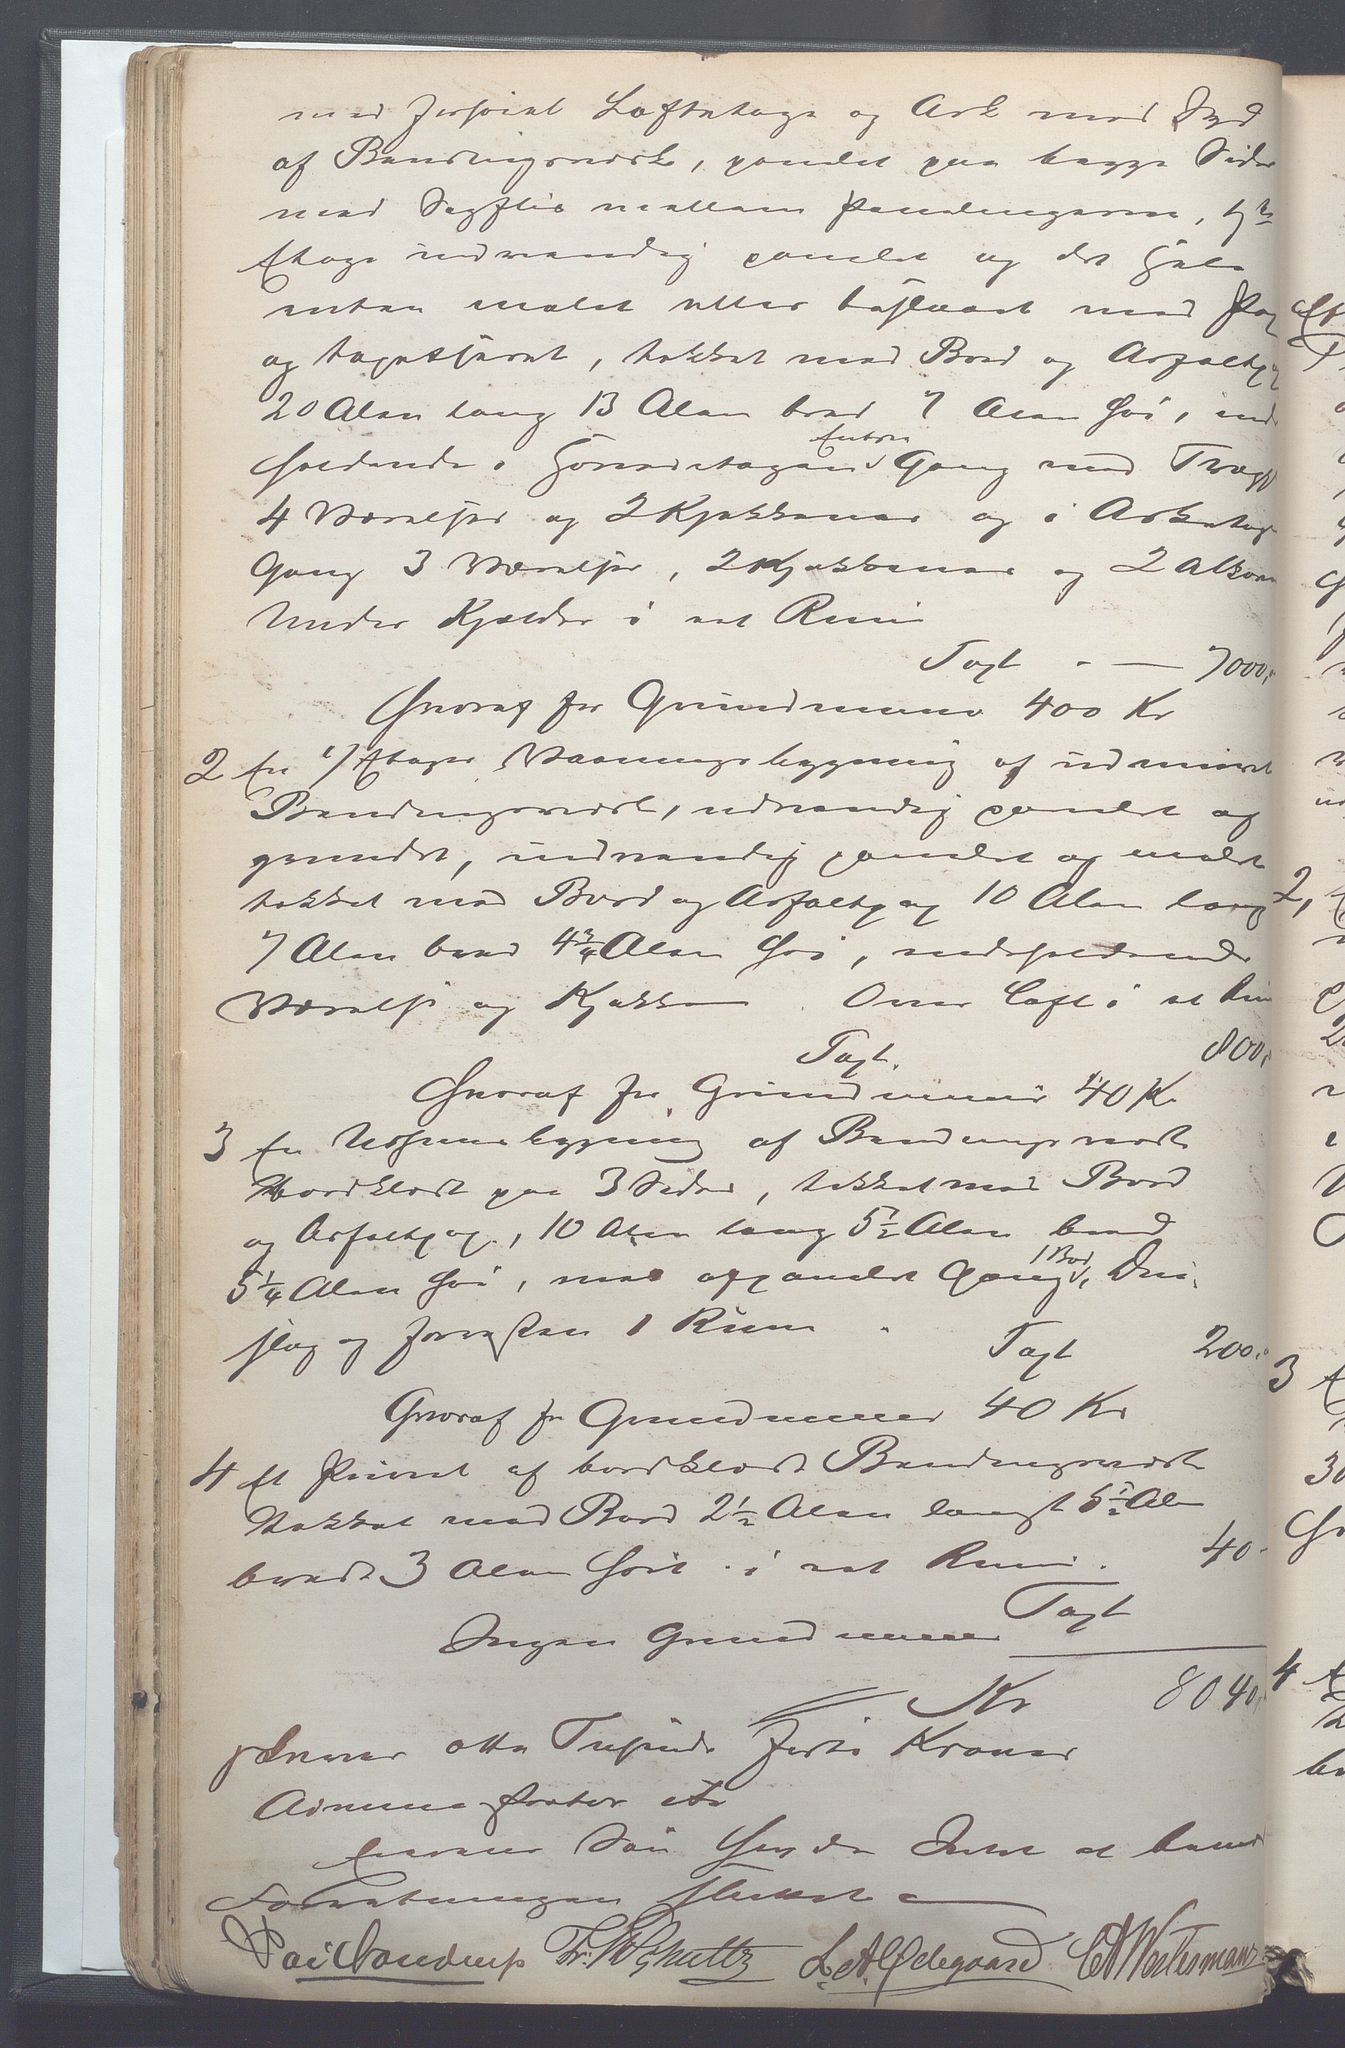 med forhøiet Loftetage og Ark mod Syd
af Bindingsværk, panelet paa begge Sider
med Sagflis mellem Panelingerne, 1ste
Etage indvendig panelet og det Hele
enten malet eller beslaaet med Pap
og tapetseret, tækket med Bord og Asfaltpap
20 Alen lang 13 Alen bred 7 Alen høi, inde
holdende i Hovedetagen Entree Gang med Trappe
4 Værelser og 2 Kjøkkener og i Arketage
Gang 3 Værelser, 2 Kjøkkener og 2 Alkover
Under Kjelder i et Rum
Taxt - — 7000,
Hvoraf for Grundmuren 400 Kr
2 En 1 Etages Vaaningsbygning af udmuret
Bindingsværk, udvendig panelet og
grundet, indvendig panelet og malet
tækket med Bord og Asfaltpap 10 Alen lang
7 Alen bred 4 3/4 Alen høi, indeholdende
Værelse og Kjøkken. Over Loft i et Rum
Taxt. 800,
Hvoraf for Grundmuur 40 Kr
3 En Udhuusbygning af Bindingsværk
Bordklædt paa 3 Sider, tækket med Bord
og Asfaltpap, 10 Alen lang 5 1/2 Alen bred
5 1/4 Alen høi, med oppanelet Gang, 1 Bod,
og forresten 1 Rum
Taxt 200,
Hvoraf for Grundmuren 40 Kr
4 Et Privet af bordklædt Bindingsværk
tækket med Bord 2 1/2 Alen langt 5 1/2 Alen
bredt 3 Alen høit i et Rum. 40-
Taxt
Ingen Grundmuur
Kr 8040,
skriver otte Tusinde Førti Kroner
Administrator etc
Intet at bemærke
Forretningen sluttet
Fr. W Schultz L. A. Ødegaard C A Westerman